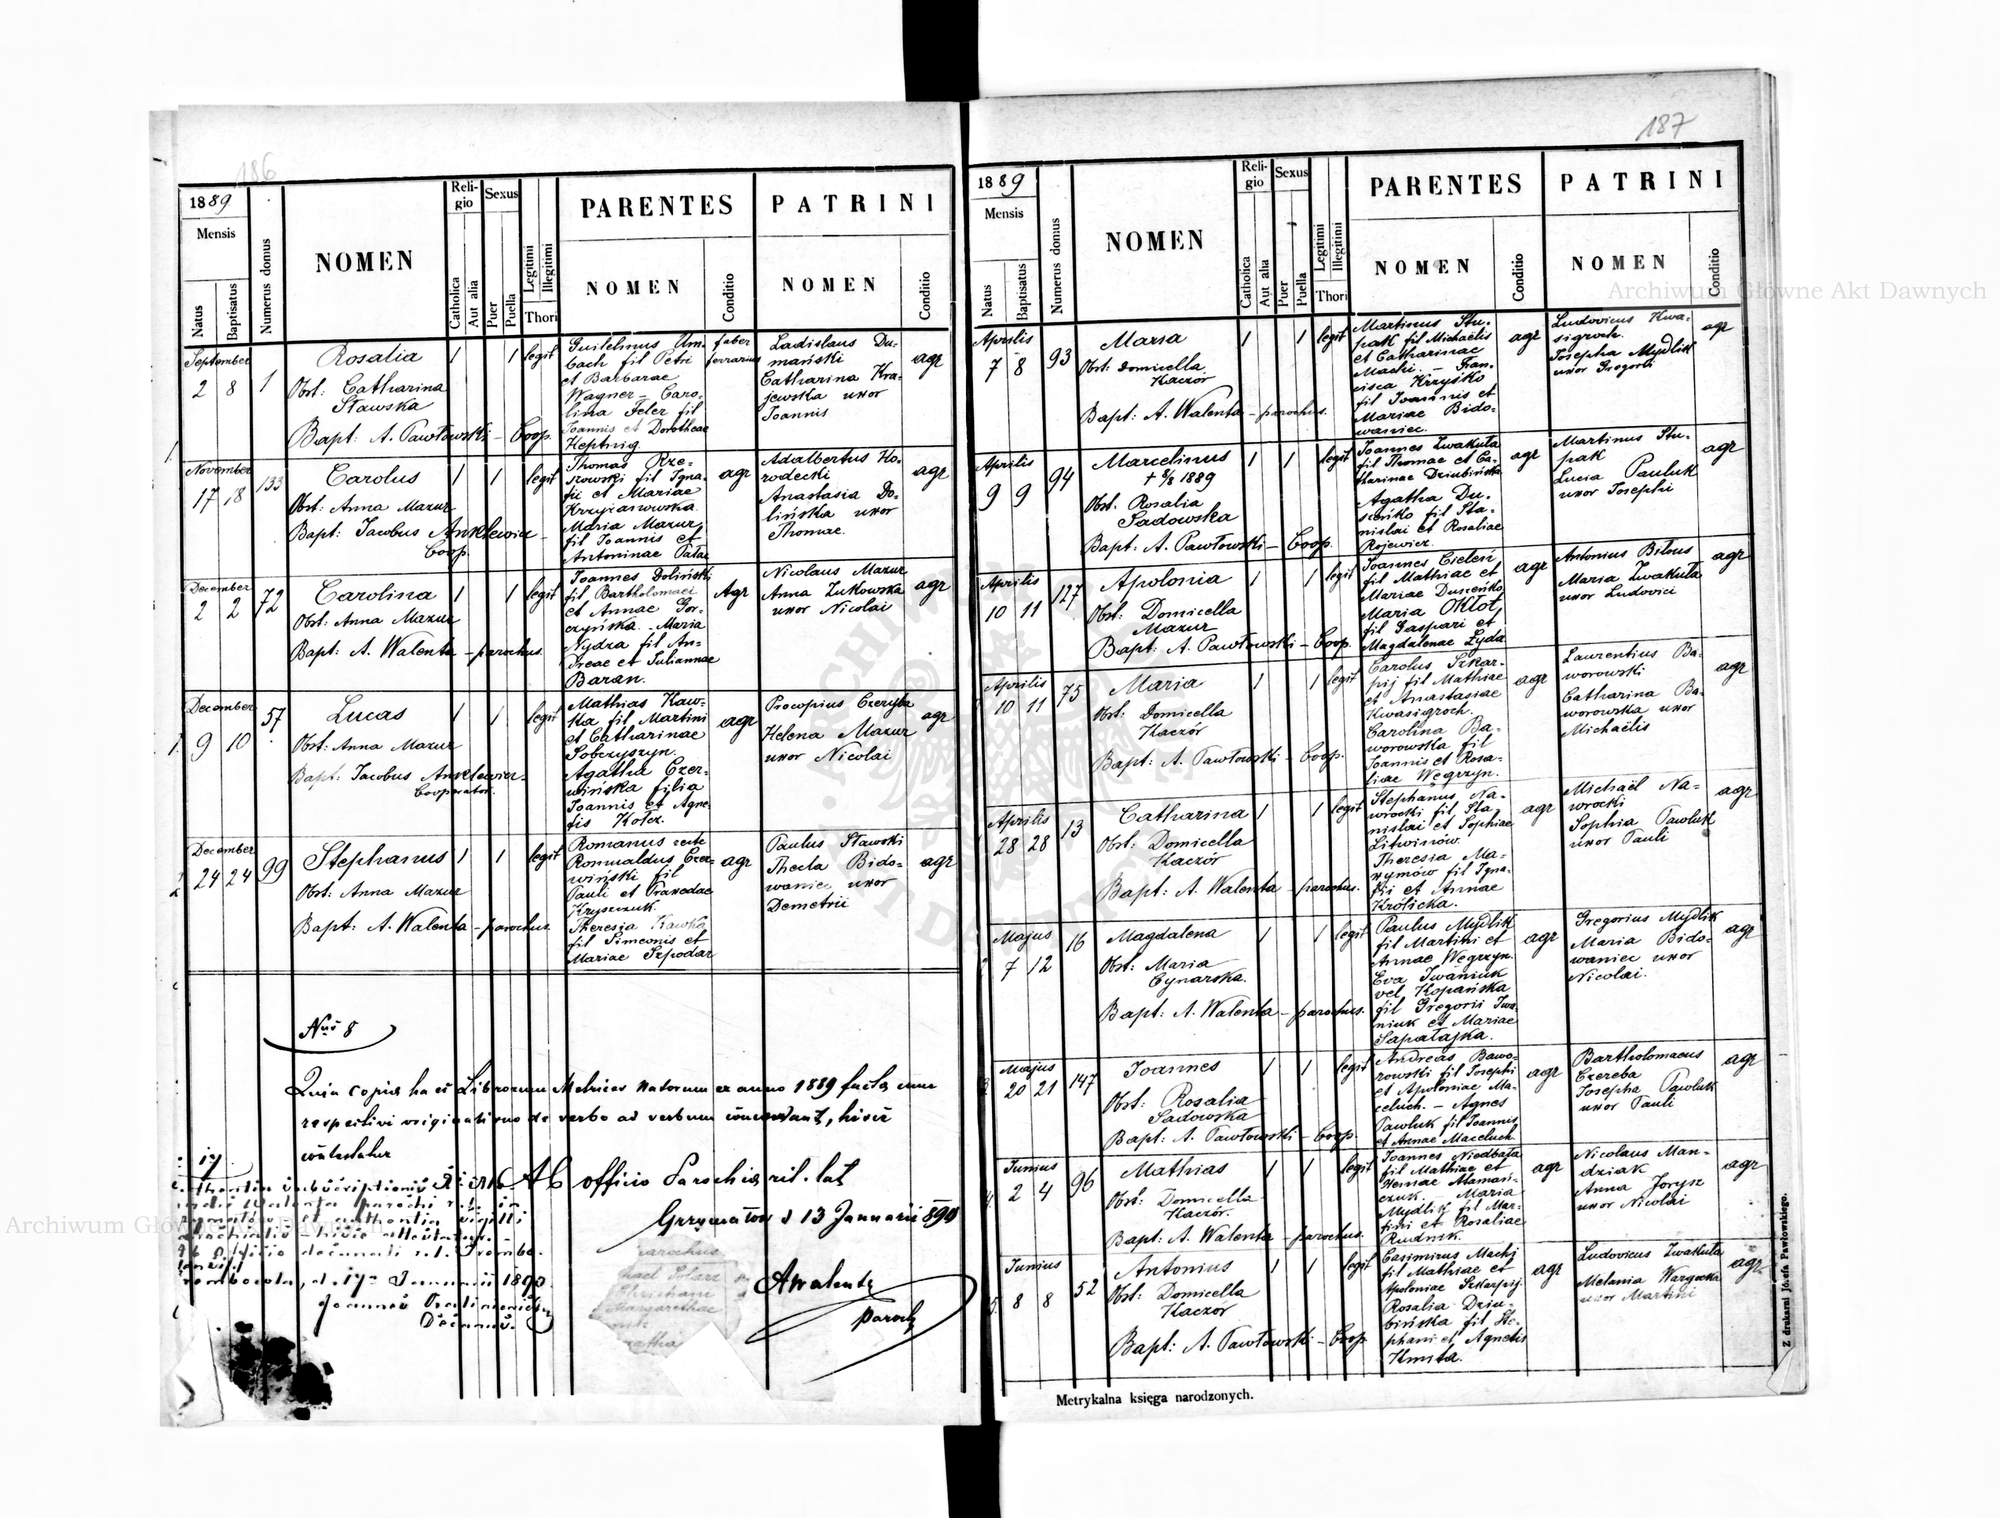 186
1889
Mensis
Natus
Baptisatus
Numerus domus
NOMEN
Reli-
gio
Catholica
Aut alia
Sexus
Puer
Puella
Legitimi
Illegitimi
Thori
PARENTES
NOMEN
Conditio
PATRINI
NOMEN
Conditio
September
2 8 1
Rosalia
Obst: Catharina
Sławska
Bapt: A. Pawłowski – Coop.
1 1 legit
Guilelmus Um-
bach fil Petri
et Barbarae
Wagner – Caro-
lina Feler fil
Joannis et Dorotheae
Heptnig
faber
ferrarius
Ladislaus Du-
mański
Catharina Kra-
jewska uxor
Joannis
agr
November
17 18 133
Carolus
Obst: Anna Mazur
Bapt: Jacobus Anklewicz –
Coop.
1 1 legit
Thomas Rze-
szowski fil Igna-
tii et Mariae
Krzyżanowska
Maria Mazur
fil Joannis et
Antoninae
agr
Adalbertus Ho-
rodecki
Anastasia Do-
lińska uxor
Thomae.
agr
December
2 2 72
Carolina
Obst: Anna Mazur
Bapt: A. Walenta – parochus.
1 1 legit
Joannes Doliński
fil Bartholomaei
et Annae Gor-
czyńska. – Maria
Nydza fil An-
dreae et Juliannae
Baran.
Agr
Nicolaus Mazur
Anna Żukowska
uxor Nicolai
agr
December
9 10 57
Lucas
Obst: Anna Mazur
Bapt: Jacobus Anklewicz –
Cooperator.
1 1 legit
Mathias Kaw-
ka fil Martini
et Catharinae
Sobczyszyn.
Agatha Czer-
wińska filia
Joannis et Agne-
tis Kotcz.
agr
Procopius Czeryba
Helena Mazur
uxor Nicolai
agr
December
24 24 99
Stephanus
Obst: Anna Mazur
Bapt: A. Walenta – parochus.
1 1 legit
Romanus recte
Romualdus Czer-
wiński fil
Pauli et Praxedae
Kryszczuk.
Theresia Kawka
fil Simeonis et
Mariae Szpodar
agr
Paulus Sławski
Thecla Bido-
waniec uxor
Demetrii
agr
Nrus 8
Quia copia haec Librorum Metrices Natorum ex anno 1889 facta cum
respectivi originali suo de verbo ad verbum concordant, hisce
contestatur
Ab officio Parochia rit. lat
Grzymałow d 13 Januarii 890
AWalenta
paroch
Januarii 1890.
Joannes
Decanus.
187
1889
Mensis
Natus
Baptisatus
Numerus domus
NOMEN
Reli-
gio
Catholica
Aut alia
Sexus
Puer
Puella
Legitimi
Illegitimi
Thori
PARENTES
NOMEN
Conditio
PATRINI
NOMEN
Conditio
Aprilis
7 8 93
Maria
Obst: Domicella
Kaczór
Bapt: A. Walenta – parochus.
1 1 legit
Martinus Stu-
pak fil Michaëlis
et Catharinae
Machi. – Fran-
cisca Krzyśko
fil Joannis et
Mariae Bido-
waniec.
agr
Ludovicus Kwa-
sigroch.
Josepha Mydlik
uxor Gregorii
agr
Aprilis
9 9 94
Marcelinus
+ 8/8 1889
Obst: Rosalia
Sadowska
Bapt: A. Pawłowski – Coop.
1 1 legit
Joannes Zwakuła
fil Thomae et Ca-
tharinae Dziubińska
Agatha Du-
szeńko fil Sta-
nislai et Rosaliae
Rojewicz.
agr
Martinus Stu-
pak
Lucia Pauluk
uxor Josephi
agr
Aprilis
10 11 127
Apolonia
Obst: Domicella
Mazur
Bapt: A Pawłowski – Coop.
1 1 legit
Joannes Cieleń
fil Mathiae et
Mariae Duszeńko
Maria Okłot
fil Gaspari et
Magdalenae Żyda
agr
Antonius Bilous
Maria Zwakuła
uxor Ludovici
agr
Aprilis
10 11 75
Maria
Obst: Domicella
Kaczór
Bapt: A. Pawłowski – Coop.
1 1 legit
Carolus Szkar-
pij fil Mathiae
et Anastasiae
Kwasigroch.
Carolina Ba-
worowska fil
Joannis et Rosa-
liae Węgrzyn.
agr
Laurentius Ba-
worowski
Catharina Ba-
worowska uxor
Michaëlis
agr
Aprilis
28 28 13
Catharina
Obst: Domicella
Kaczór
Bapt: A. Walenta – parochus.
1 1 legit
Stephanus Na-
wrocki fil Sta-
nislai et Sophiae
Litwinów.
Theresia Ma-
xymów fil Igna-
tii et Annae
Królicka.
agr
Michaël Na-
wrocki
Sophia Pawluk
uxor Pauli
agr
Majus
7 12 16
Magdalena
Obst: Maria
Cynarska.
Bapt: A. Walenta – parochus.
1 1 legit
Paulus Mydlik
fil Martini et
Annae Węgrzyn.
Eva Iwaniuk
vel Kopańska
fil Gregorii Iwa-
niuk et Mariae
Sapałajka.
agr
Gregorius Mydlik
Maria Bido-
waniec uxor
Nicolai.
agr
Majus
20 21 147
Joannes
Obst: Rosalia
Sadowska
Bapt: A. Pawłowski – Coop.
1 1 legit
Andreas Bawo-
rowski fil Josephi
et Apoloniae Ma-
celuch. – Agnes
Pawluk fil Joannis
et Annae Maceluch
agr
Bartholomaeus
Czereba
Josepha Pawluk
uxor Pauli
agr
Junius
2 4 96
Mathias
Obst: Domicella
Kaczór.
Bapt: A. Walenta – parochus.
1 1 legit
Joannes Niedbała
fil Mathiae et
Hemae Ataman-
czuk. – Maria
Mydlik fil Mar-
tini et Rosaliae
Rudnik.
agr
Nicolaus Man-
dziak
Anna Jorysz
uxor Nicolai
agr
Junius
8 8 52
Antonius
Obst: Domicella
Kaczór
Bapt: A. Pawłowski – Coop
1 1 legit
Casimirus Machj
fil Mathiae et
Apoloniae Szkarpij
Rosalia Dziu-
bińska fil Ste-
phani et Agnetis
Kmita.
agr
Ludovicus Zwakuła
Melania Wargocka
uxor Martini
agr
Metrykalna księga narodzonych.
Z drukarni Józefa Pawłowskiego.
Archiwum Główne Akt Dawnych
Archiwum Główne Akt Dawnych